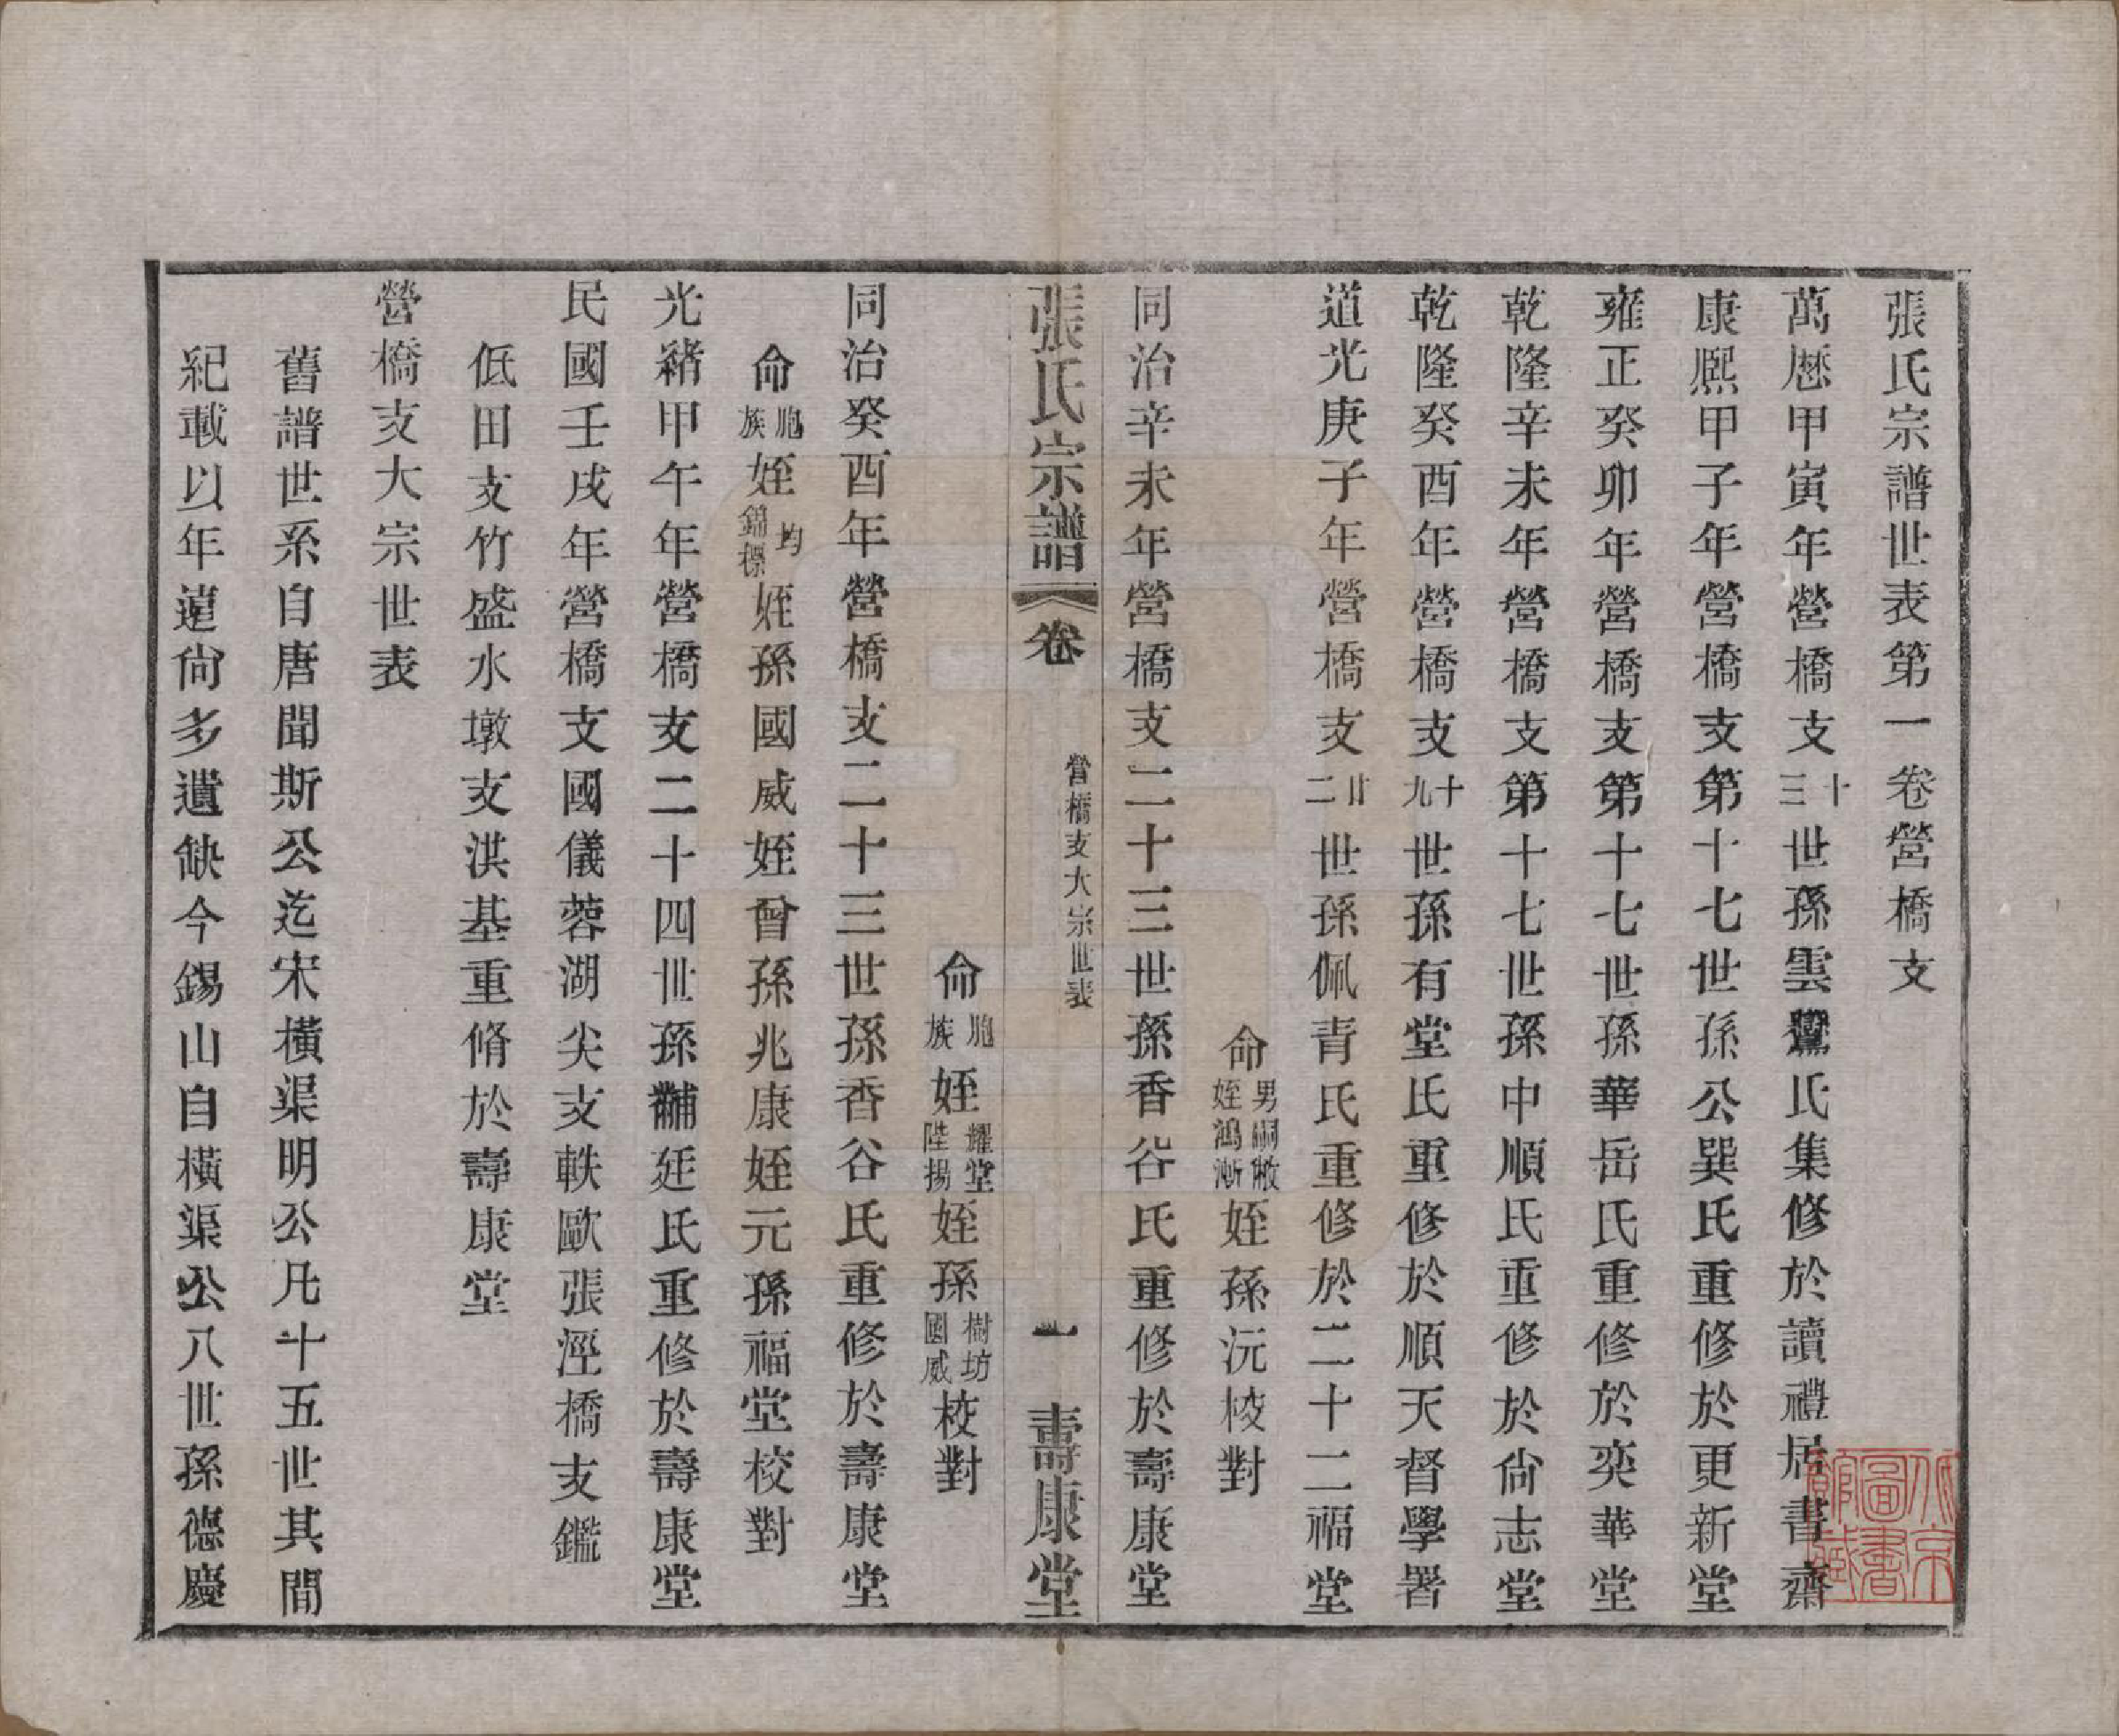 張氏宗譜世表第一卷營橋支
萬厯甲寅年營橋支十三世孫雲鸞氏集修於讀禮居書齋
康熙甲子年營橋支第十七世孫公巽氏重修於更新堂
雍正癸卯年營橋支第十七世孫華岳氏重修於奕華堂
乾隆辛未年營橋支第十七世孫中順氏重修於尙志堂
乾隆癸酉年營橋支十九世孫有堂氏重修於順天督學署
道光庚子年營橋支廿二世孫佩青氏重修於二十二福堂
命男嗣敝姪鴻漸姪孫沅校對
同治辛未年營橋支二十三世孫香谷氏重修於壽康堂
張氏宗譜 卷 營橋支大宗世表 一 壽康堂
命胞族姪耀堂陞揚姪孫樹坊國威校對
同治癸酉年營橋支二十三世孫香谷氏重修於壽康堂
命胞族姪均錦標姪孫國威姪曾孫兆康姪元孫福堂校對
光緒甲午年營橋支二十四世孫黼廷氏重修於壽康堂
民國壬戌年營橋支國儀蓉湖尖支軼歐張涇橋支鑑
低田支竹盛水墩支洪基重脩於壽康堂
營橋支大宗世表
舊譜世系自唐聞斯公迄宋橫渠明公凡十五世其間
紀載以年遠尙多遺缺今錫山自橫渠公八世孫德慶
北京圖書館藏